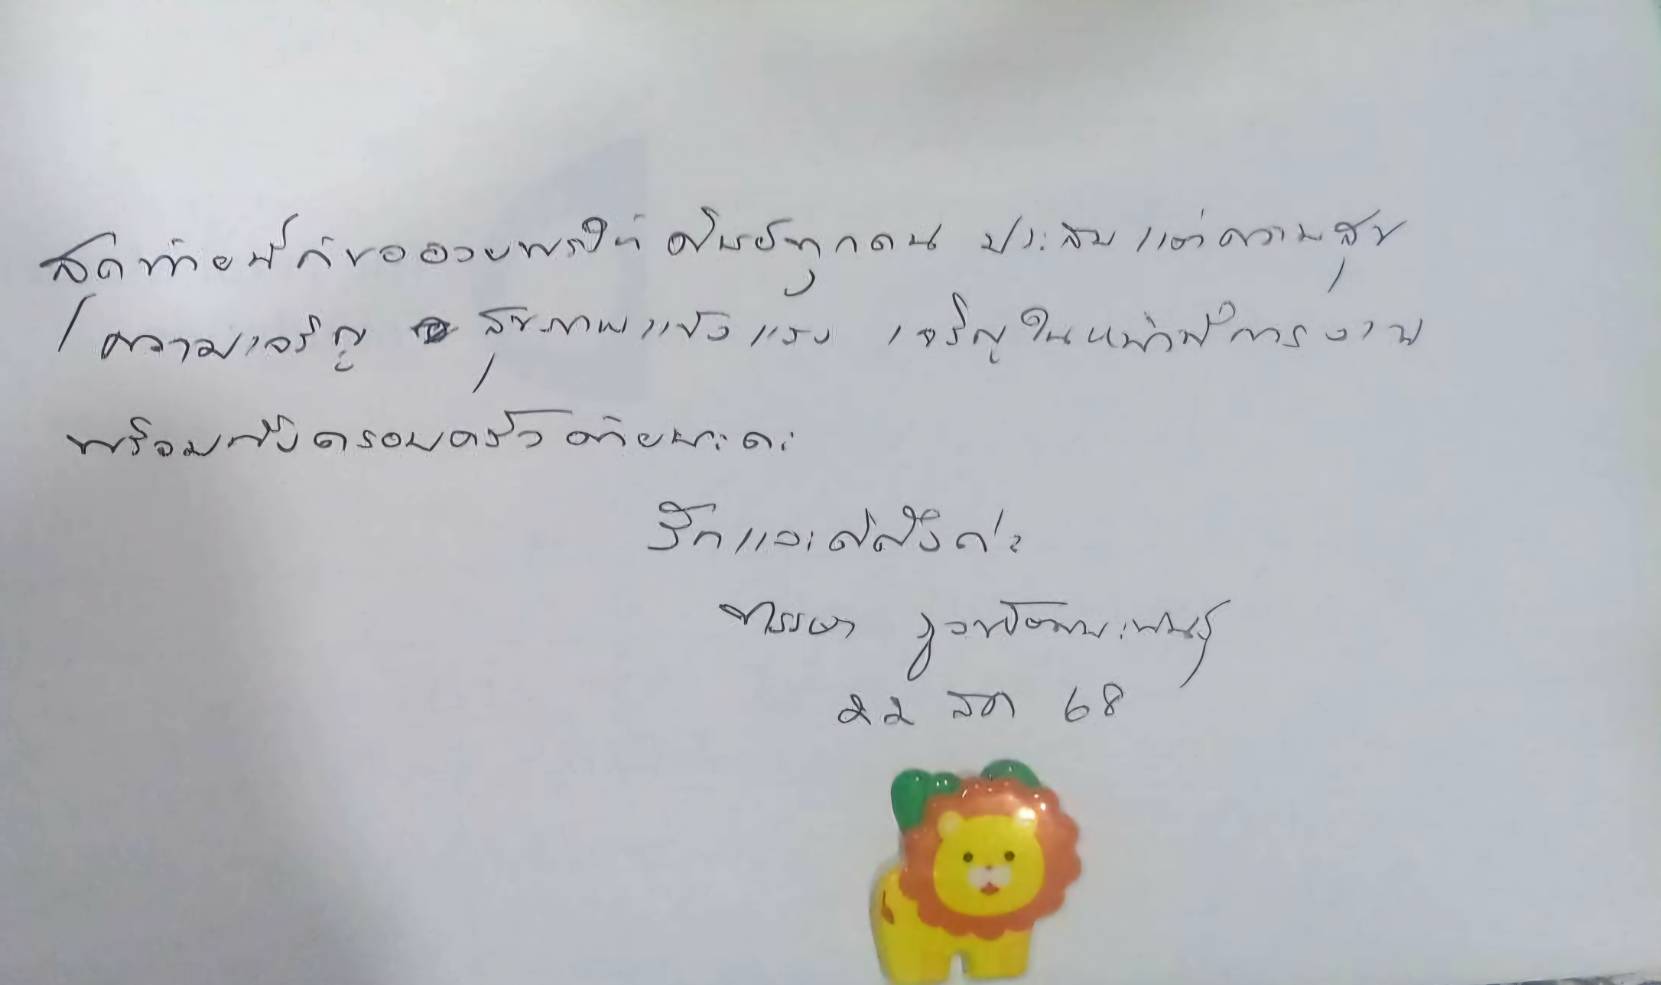 สุดท้ายนี้ก็ขออวยพรให้ศิษย์ทุกคน ประสบแต่ความสุข
ความเจริญ สุขภาพแข็งแรง เจริญในหน้าที่การงาน
พร้อมทั้งครอบครัวด้วยนะคะ
รักและคิดถึงค่ะ
22 สค 68